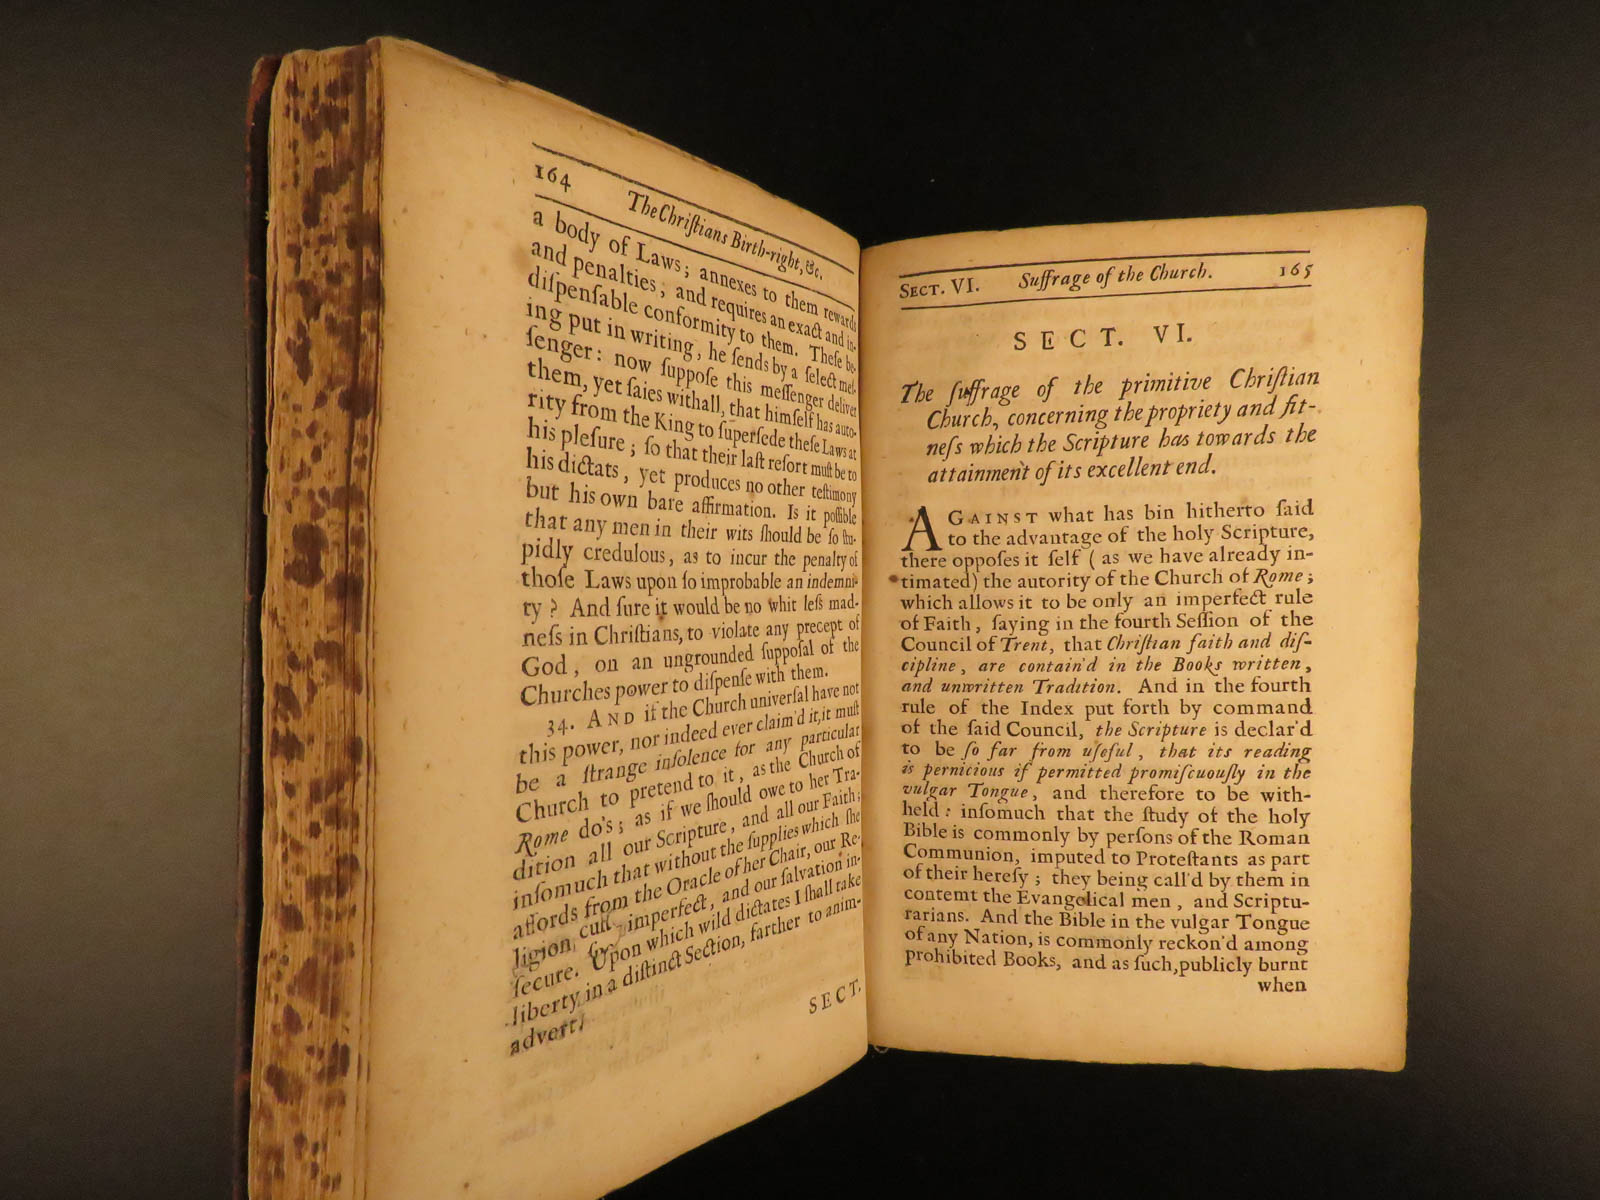 164
The Chriſtians Birth-right, &c.
a body of Laws; annexes to them rewards
and penalties, and requires an exact and in-
diſpenſable conformity to them. Theſe be-
ing put in writing, he ſends by a ſelect meſ-
ſenger: now ſuppoſe this meſſenger deliver
them, yet ſaies withall, that himſelf has auto-
rity from the King to ſuperſede theſe Laws at
his pleſure; ſo that their laſt reſort muſt be to
his dictats, yet produces no other teſtimony
but his own bare affirmation. Is it poſſible
that any men in their wits ſhould be ſo ſtu-
pidly credulous, as to incur the penalty of
thoſe Laws upon ſo improbable an indemni-
ty? And ſure it would be no whit leſs mad-
neſs in Chriſtians, to violate any precept of
God, on an ungrounded ſuppoſal of the
Churches power to diſpenſe with them.
34. AND if the Church univerſal have not
this power, nor indeed ever claim'd it, it muſt
be a ſtrange inſolence for any particular
Church to pretend to it, as the Church of
Rome do's; as if we ſhould owe to her Tra-
dition all our Scripture, and all our Faith;
inſomuch that without the ſupplies which ſhe
affords from the Oracle of her Chair, our Re-
ligion imperfect, and our ſalvation in-
ſecure. Upon which wild dictates I ſhall take
liberty in a diſtinct Section, farther to anim-
advert.
SECT.
SECT. VI. Suffrage of the Church. 165
SECT. VI.
The ſuffrage of the primitive Chriſtian
Church, concerning the propriety and fit-
neſs which the Scripture has towards the
attainment of its excellent end.
AGAINST what has bin hitherto ſaid
to the advantage of the holy Scripture,
there oppoſes it ſelf (as we have already in-
timated) the autority of the Church of Rome;
which allows it to be only an imperfect rule
of Faith, ſaying in the fourth Seſſion of the
Council of Trent, that Chriſtian faith and diſ-
cipline, are contain'd in the Books written,
and unwritten Tradition. And in the fourth
rule of the Index put forth by command
of the ſaid Council, the Scripture is declar'd
to be ſo far from uſeful, that its reading
is pernicious if permitted promiſcuouſly in the
vulgar Tongue, and therefore to be with-
held: inſomuch that the ſtudy of the holy
Bible is commonly by perſons of the Roman
Communion, imputed to Proteſtants as part
of their hereſy; they being call'd by them in
contemt the Evangelical men, and Scriptu-
rarians. And the Bible in the vulgar Tongue
of any Nation, is commonly reckon'd among
prohibited Books, and as ſuch, publicly burnt
when